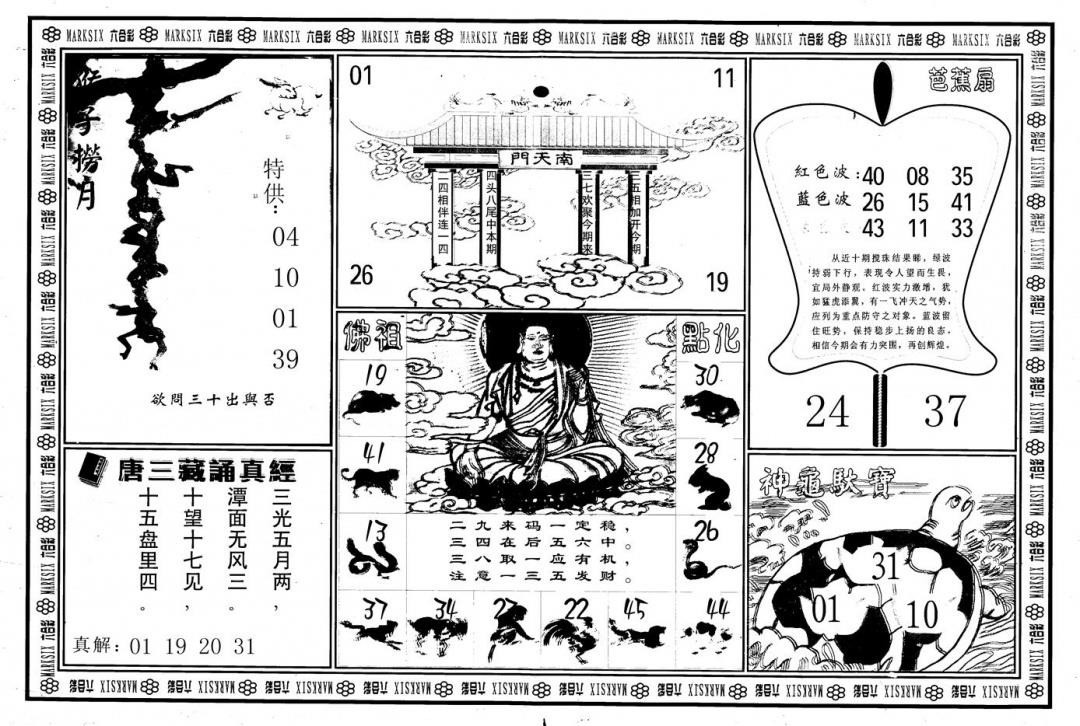 MARKSIX 六合彩 MARKSIX 六合彩 MARKSIX 六合彩 MARKSIX 六合彩 MARKSIX 六合彩 MARKSIX 六合彩 MARKSIX 六合彩 MARKSIX 六合彩 MARKSIX 六合彩 MARKSIX 六合彩
猴子撈月
特供：
04
10
01
39
欲問三十出與否
唐三藏誦真經
三光五月两，
潭面无风三。
十望十七见，
十五盘里四。
真解：01 19 20 31
01
11
南天門
二四相伴连一四
四头八尾中本期
三七欢聚今期来
三五相加开今期
26
19
佛祖
點化
19
30
41
28
13
26
二九来码一定稳，
三四在后五六中。
三八取一应有机，
注意一三五发财。
37
34
22
45
44
芭蕉扇
紅色波：40 08 35
蓝色波 26 15 41
43 11 33
从近十期搅珠结果睇，绿波
持弱下行，表现令人望而生畏，
宜局外静观。红波实力激增，犹
如猛虎添翼，有一飞冲天之气势，
应列为重点防守之对象。蓝波留
住旺势，保持稳步上扬的良态，
相信今期会有力突围，再创辉煌。
24
37
神龜馱寶
31
01
10
MARKSIX 六合彩 MARKSIX 六合彩 MARKSIX 六合彩 MARKSIX 六合彩 MARKSIX 六合彩 MARKSIX 六合彩 MARKSIX 六合彩 MARKSIX 六合彩 MARKSIX 六合彩 MARKSIX 六合彩